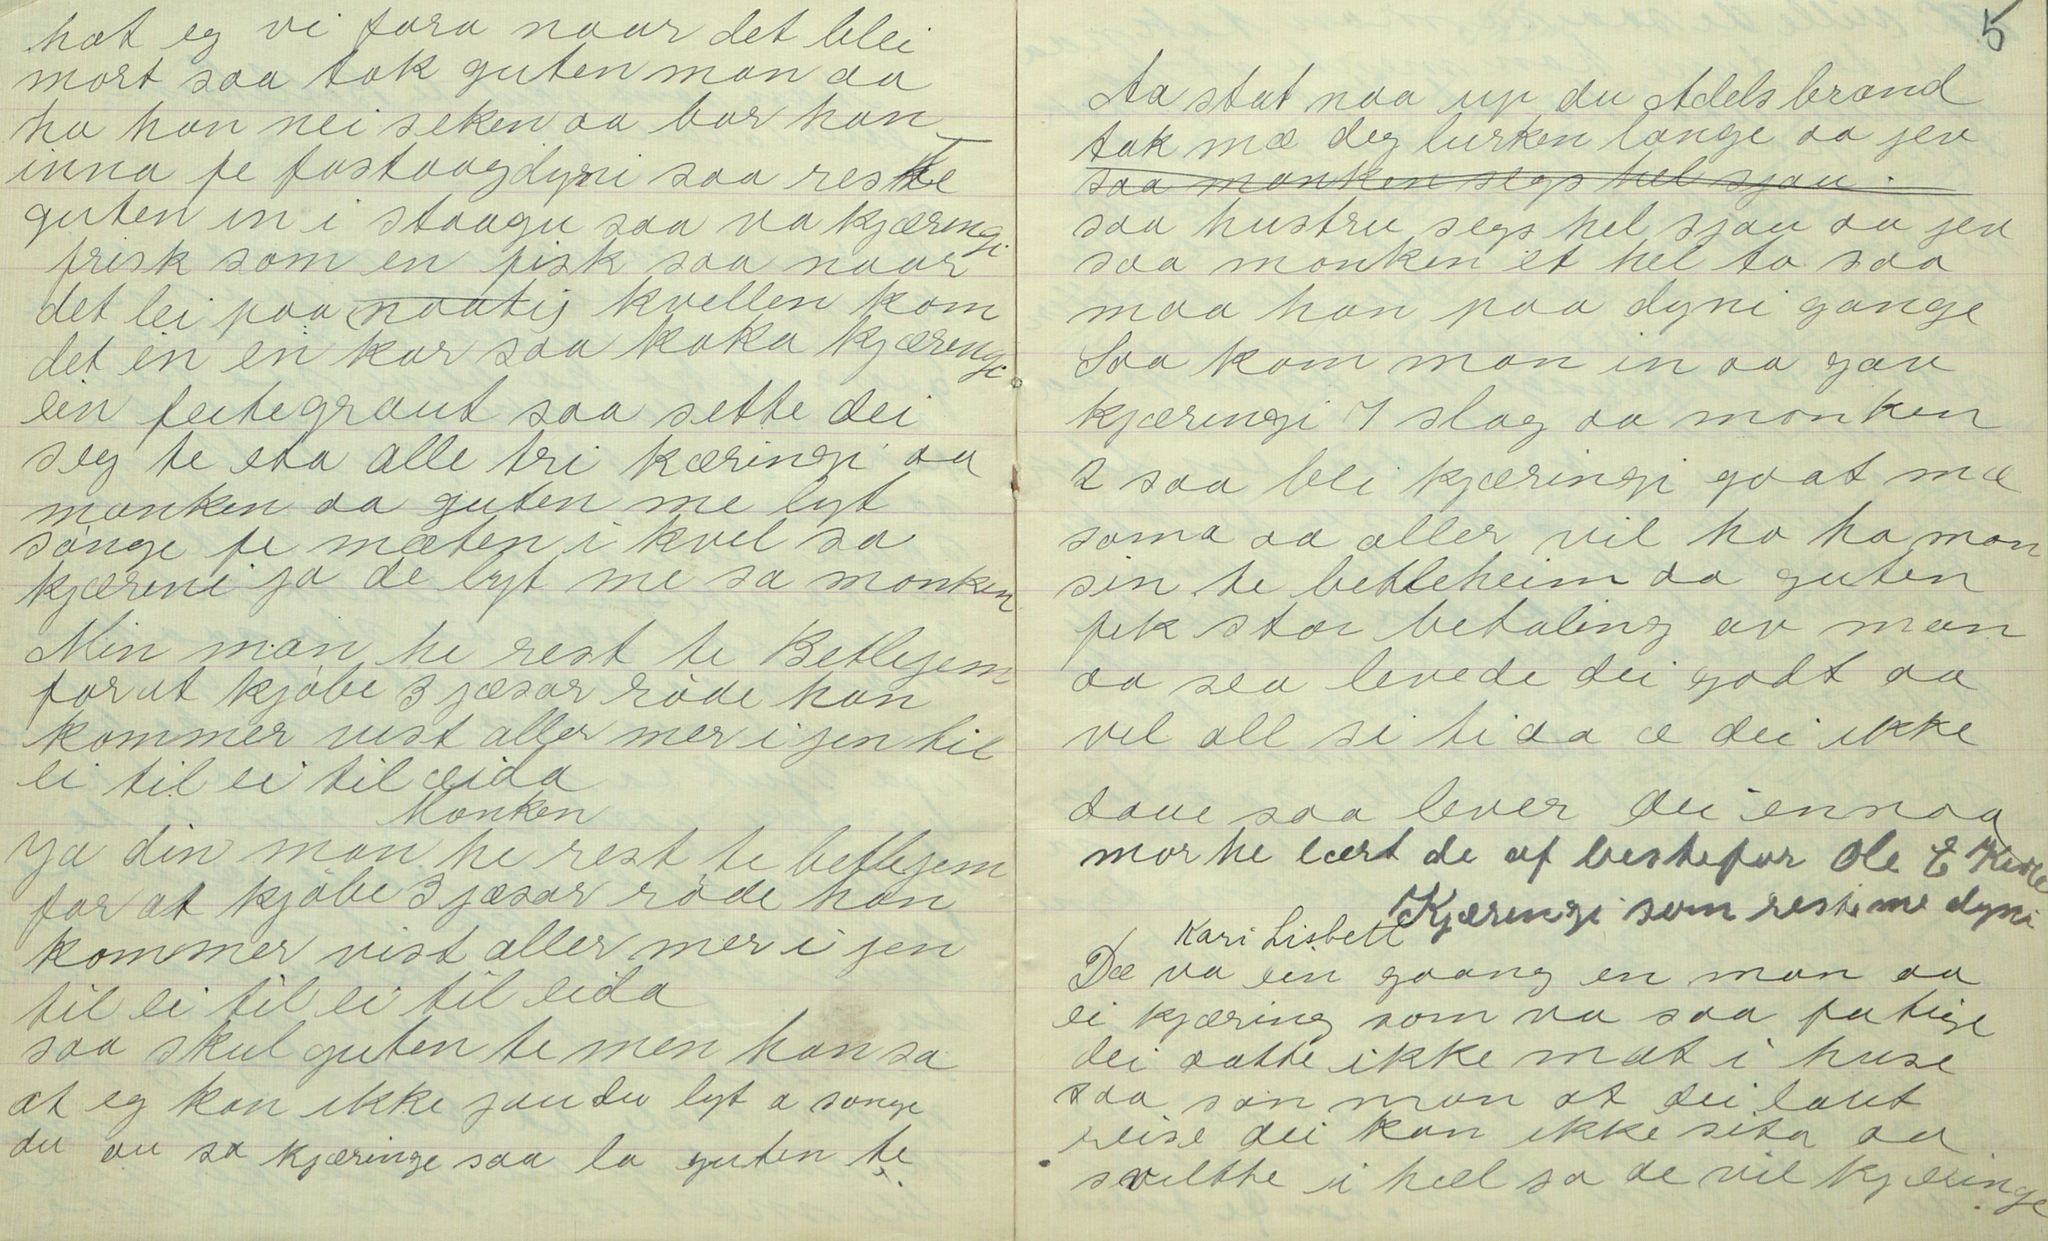 hat eg vi fara naar det blei
mort saa tok guten man aa
ha han nei seken aa bar han
inna fe fastoogdyni saa reste
guten in i stoogu saa va kjæringi
frisk som en fisk saa naar
det lei paa naatis kvellen kom
det in en kar saa koka kjæringi
ein feitegraut saa sette dei
seg te eta alle tri kæringi aa
manken aa guten me lyt
sönge fe mæten i kvel sa
kjæreni ja de lyt me sa monken
Min man he rest te Betlejem
for at kjöbe 3 jæsar röde han
kommer vist aller mer i jen til
ei til ei til æida
Monken
Ja din man he rest te betlejem
for at kjöbe 3 jæsar röde han
kommer vist aller mer i jen
til ei til ei til eida
saa skul guten te men han sa
at eg kan ikke jau du lyt a sönge
du au sa kjæringe saa la guten te
5
Aa stat naa up du Adelsbrand
tak mæ deg lurken lange aa jev
saa manken segs hel sjau.
saa hustru segs hel sjau aa jev
saa monken et hel to saa
maa han paa dyni gange
Saa kom man in aa gav
kjæringi 7 slag aa monken
2 saa blei kjæringi goat mæ
soma aa aller vil ho ha man
sin te betleheim aa guten
fek stor betaling av man
aa sea levede dei godt aa
vel all si ti aa æ dei ikke
daue saa lever dei ennaa
mor he lært de af bestefar Ole E
Kjæringi som reste me dyni
Kari Lisbett
Dæ va ein goang en man aa
ei kjæring som va saa fatige
dei aatte ikke mat i huse
saa san man at dei laut
reise dei kan ikke sita aa
sviltte i hæl sa de vil kjæringe